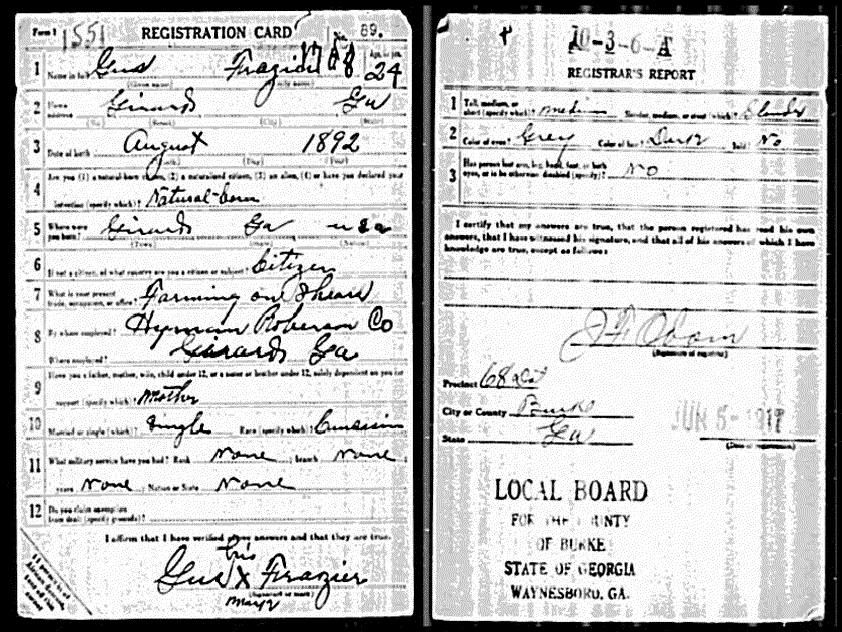 Form 1 1551 REGISTRATION CARD No. 89.
1 Name in full Gus Frazier Age, in yrs. 24
(Given name) (Family name)
2 Home address Girard Ga
(No.) (Street) (City) (State)
3 Date of birth August 1892
(Month) (Day) (Year)
4 Are you (1) a natural-born citizen, (2) a naturalized citizen, (3) an alien, (4) or have you declared your
intention (specify which)? Natural-born
5 Where were you born? Girard Ga usa
(Town) (State) (Nation)
6 If not a citizen, of what country are you a citizen or subject? Citizen
7 What is your present trade, occupation, or office? Farming on Shear
8 By whom employed? Hyman Roberson Co
Where employed? Girard Ga
9 Have you a father, mother, wife, child under 12, or a sister or brother under 12, solely dependent on you for
support (specify which)? Mother
10 Married or single (which)? Single Race (specify which)?
11 What military service have you had? Rank None ; branch None ;
years None ; Nation or State None
12 Do you claim exemption
from draft (specify grounds)?
I affirm that I have verified above answers and that they are true.
his
Gus X Frazier
(Signature or mark)
mark
10-3-6-A
REGISTRAR'S REPORT
1 Tall, medium, or short (specify which)? medium Slender, medium, or stout (which)? Slender
2 Color of eyes? Grey Color of hair? Dark Bald? No
3 Has person lost arm, leg, hand, foot, or both
eyes, or is he otherwise disabled (specify)? NO
I certify that my answers are true, that the person registered has read his own
answers, that I have witnessed his signature, and that all of his answers of which I have
knowledge are true, except as follows:
(Signature of registrar)
Precinct 68 Dist
City or County Burke
State Ga
JUN 5-1917
(Date of registration)
LOCAL BOARD
FOR THE COUNTY
OF BURKE
STATE OF GEORGIA
WAYNESBORO, GA.